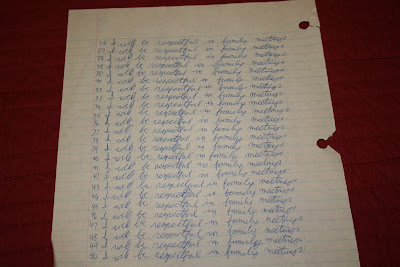 26 I will be respectful in family meetings.
27 I will be respectful in family meetings.
28 I will be respectful in family meetings.
29 I will be respectful in family meetings.
30 I will be respectful in family meetings.
31 I will be respectful in family meetings.
32 I will be respectful in family meetings.
33 I will be respectful in family meetings.
34 I will be respectful in family meetings.
35 I will be respectful in family meetings.
36 I will be respectful in family meetings.
37 I will be respectful in family meetings.
38 I will be respectful in family meetings.
39 I will be respectful in family meetings.
40 I will be respectful in family meetings.
41 I will be respectful in family meetings.
42 I will be respectful in family meetings.
43 I will be respectful in family meetings.
44 I will be respectful in family meetings.
45 I will be respectful in family meetings.
46 I will be respectful in family meetings.
47 I will be respectful in family meetings.
48 I will be respectful in family meetings.
49 I will be respectful in family meetings.
50 I will be respectful in family meetings.